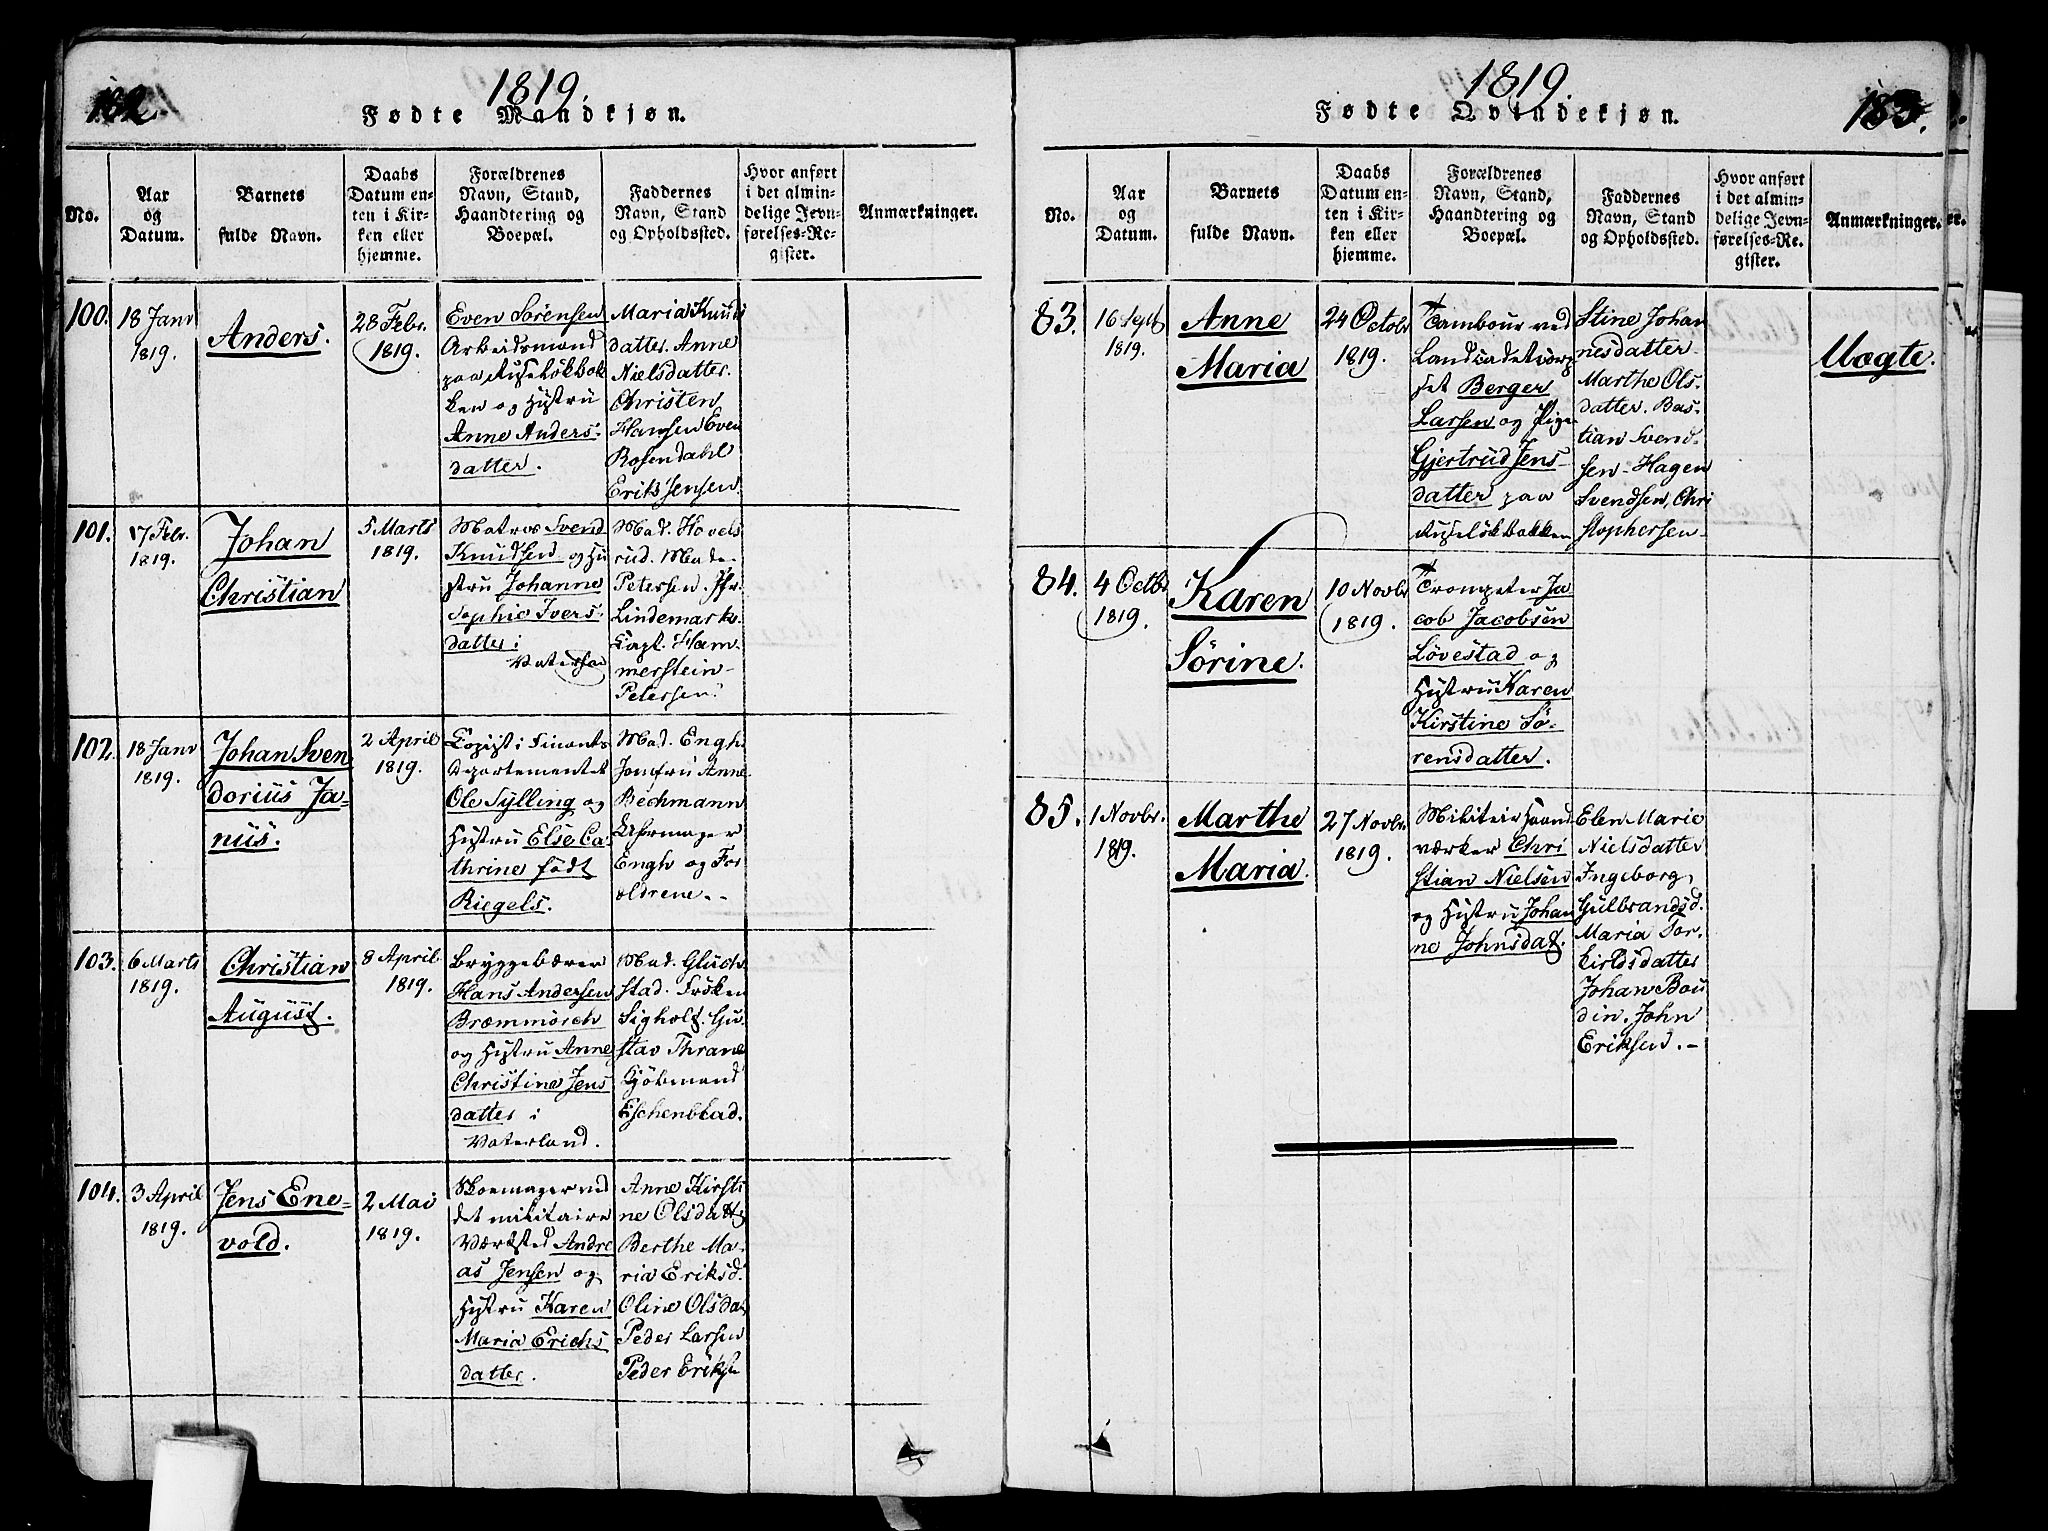 182
1819.
Fødte Mandkjøn.
No.
Aar
og
Datum.
Barnets
fulde Navn.
Daabs
Datum en-
ten i Kir-
ken eller
hjemme.
Forældrenes
Navn, Stand,
Haandtering og
Boepæl.
Faddernes
Navn, Stand
og Opholdssted.
Hvor anført
i det almin-
delige Jevn-
førelses-Re-
gister.
Anmærkninger.
100.
18 Janv
1819.
Anders.
28 Febr.
1819.
Even Sørensen
Arbeidsmand
paa Ruseløkbak
ken og Hustru
Anne Anders-
datter.
Maria Knuds
datter. Anne
Nielsdatter.
Christen
Hansen Even
Rosendahl
Erik Jensen.
101.
17 Febr.
1819.
Johan
Christian
5 Marts
1819.
Matros Svend
Knudsen og Hu
stru Johanne
Sophie Ivers-
datter i
Mad. Hovels
rud. Made-
Petersen. Hr.
Lindemark.
Capt. Ham-
merstein-
Petersen.
102.
18 Janv
1819.
Johan Sven
dorius Ja-
nus.
2 April
1819.
Copist i Finants
Departementet
Ole Sylling og
Hustru Else Ca-
thrine født
Riegels.
Mad. Engh.
Jomfru Anne
Bechmann
Uhrmager
Engh og For
ældrene.
103.
6 Marts
1819.
Christian
August.
8 April
1819.
Bryggebærer
Hans Andersen
Bræmmörch
og Hustru Anne
Christine Jens
datter i
Vaterland.
Mad. Gluck
stad. Frøken
Sigholt. Gu
stav Thrane
Kjøbmand
Eschenblad.
104.
3 April
1819.
Jens Ene-
vold.
2 Mai
1819.
Skoemager ved
det militaire
Værksted Andre
as Jensen og
Hustru Karen
Maria Erichs
datter.
Anne Kirsti
ne Olsdatt
Berthe Ma-
ria Eriksd.
Oline Olsdat
Peder Larsen
Peder Eriks
1819.
Fødte Qvindekjøn.
183.
No.
Aar
og
Datum.
Barnets
fulde Navn.
Daabs
Datum en-
ten i Kir-
ken eller
hjemme.
Forældrenes
Navn, Stand,
Haandtering og
Boepæl.
Faddernes
Navn, Stand
og Opholdssted.
Hvor anført
i det almin-
delige Jevn-
førelses-Re-
gister.
Anmærkninger.
83.
16 Sept
1819.
Anne
Maria
24 Octobr
1819.
Tambour ved
Landcadetcorp
set Berger
Larsen og Pige
Gjertrud Jens-
datter paa
Ruseløkbakken
Stine Johan
nesdatter-
Marthe Ols-
datter. Bas-
tian Svend-
sen- Hagen
Svendsen, Chri
stophersen-
Uægte.
84.
4 Octbr
1819.
Karen
Sörine.
10 Novbr
1819.
Trompeter Ja
cob Jacobsen
Løvestad og
Hustru Karen
Kirstine Sö-
rensdatter.
85.
1 Novbr.
1819.
Marthe
Maria.
27 Novbr
1819.
Militair Haand
værker Chri
stian Nielsen
og Hustru Johan
ne Johnsdat.
Elen Marie
Nielsdatter
Ingeborg
Gulbrandsd.
Maria Tor-
kildsdatter
Johan Bou
din. John
Eriksen.-